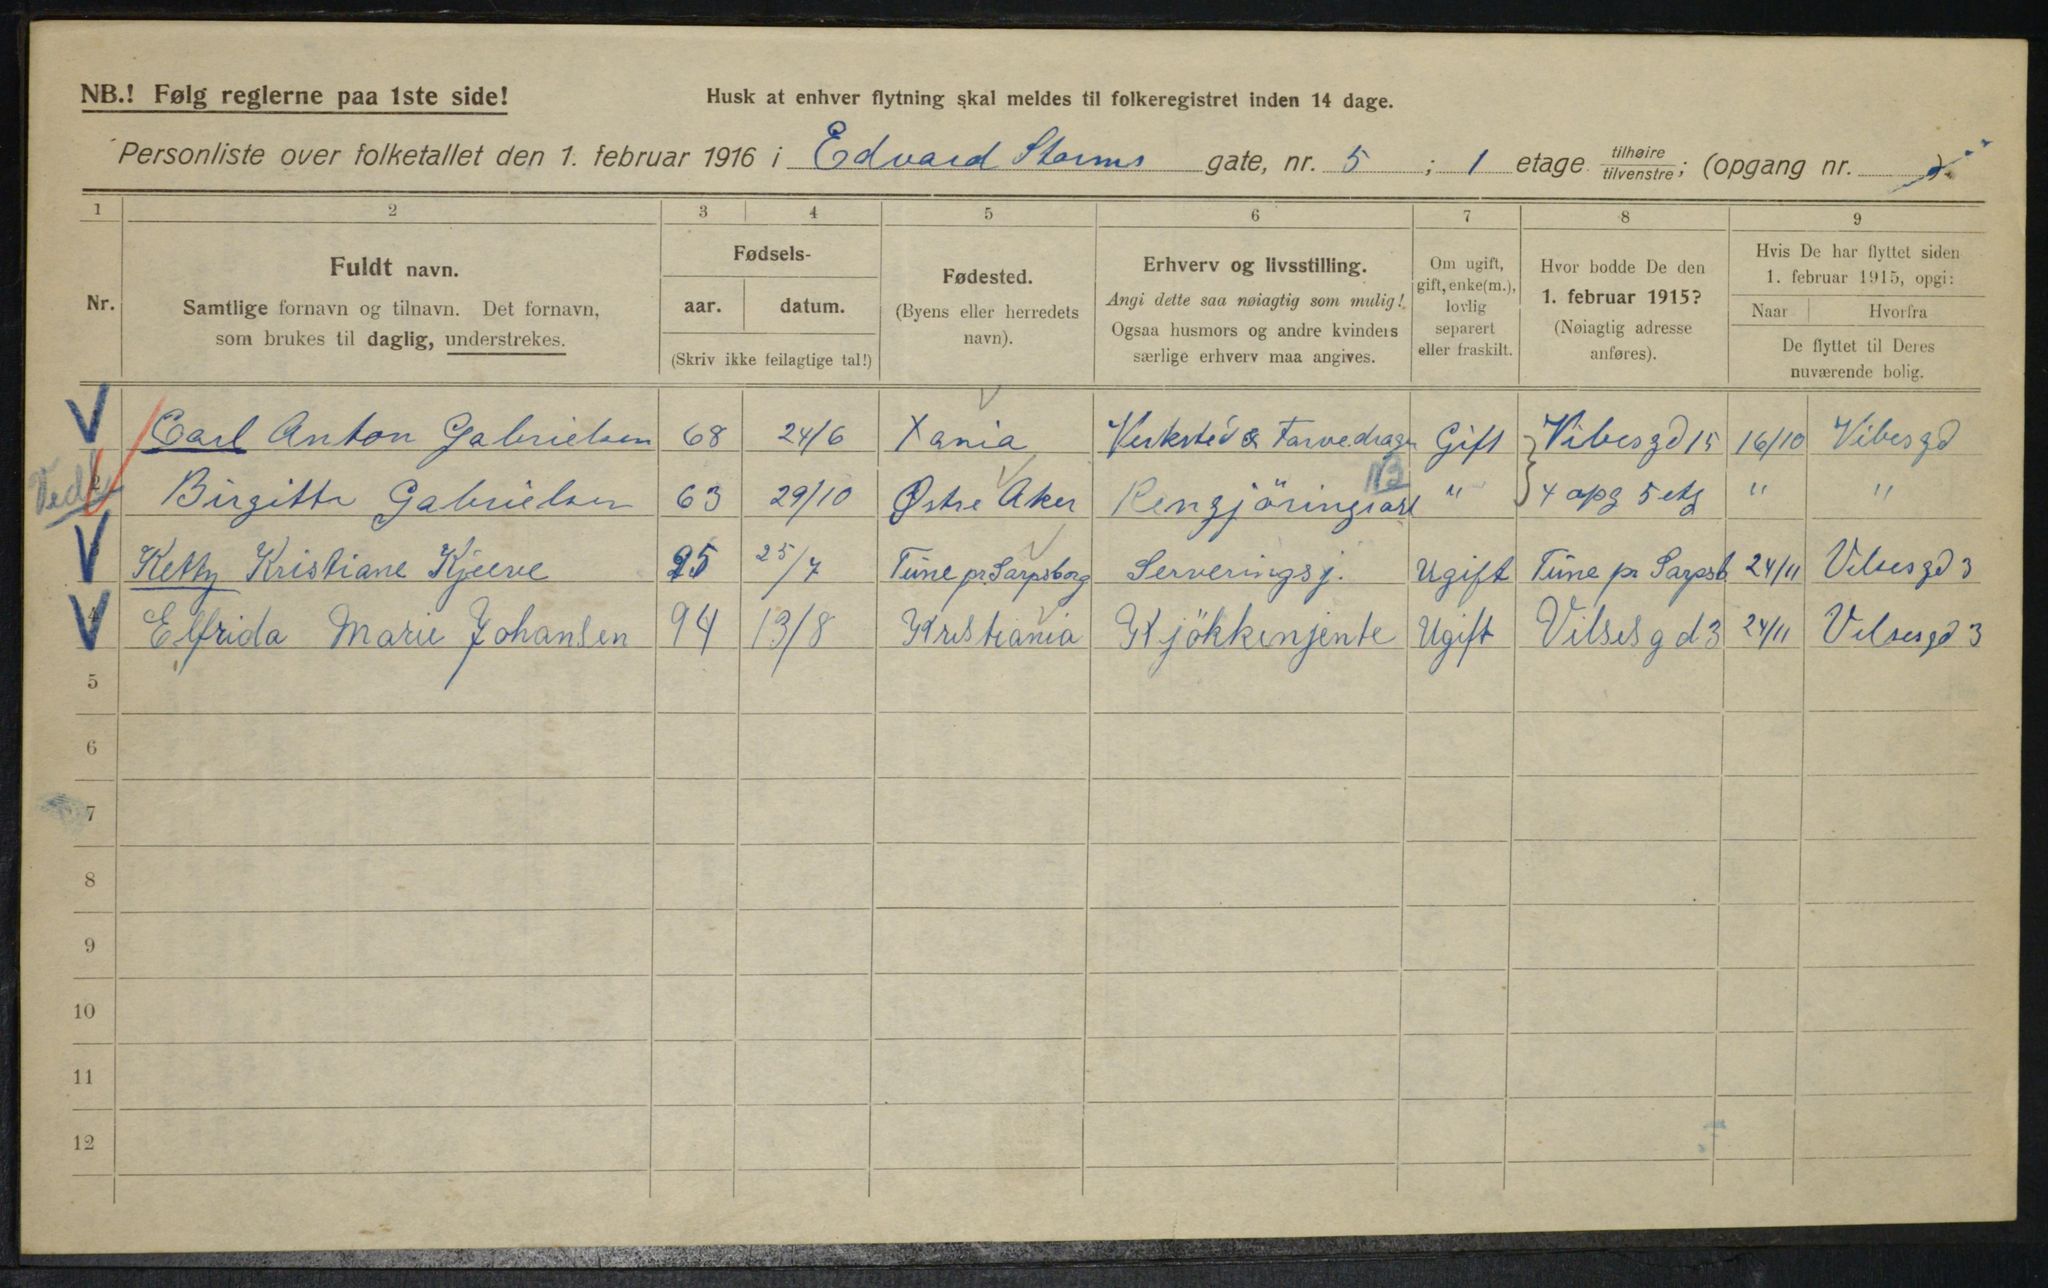 NB.! Følg reglerne paa 1ste side!
Husk at enhver flytning skal meldes til folkeregistret inden 14 dage.
Personliste over folketallet den 1. februar 1916 i Edvard Storms gate, nr. 5; 1 etage tilhøire tilvenstre; (opgang nr. ).
1 2 3 4 5 6 7 8 9
Nr.
Fuldt navn.
Samtlige fornavn og tilnavn. Det fornavn,
som brukes til daglig, understrekes.
Fødsels-
aar. datum.
(Skriv ikke feilagtige tal!)
Fødested.
(Byens eller herredets
navn).
Erhverv og livsstilling.
Angi dette saa nøiagtig som mulig!
Ogsaa husmors og andre kvinders
særlige erhverv maa angives.
Om ugift,
gift, enke(m.),
lovlig
separert
eller fraskilt.
Hvor bodde De den
1. februar 1915?
(Nøiagtig adresse
anføres).
Hvis De har flyttet siden
1. februar 1915, opgi:
Naar Hvorfra
De flyttet til Deres
nuværende bolig.
Carl Anton Gabrielsen 68 24/6 Xania Verksted & Farvedrager Gift Vibesgd 15 16/10 Vibesgd
2 Birgitte Gabrielsen 63 29/10 Østre Aker Rengjöring " 4 opg 5 etg " "
NB
Ketty Kristiane Kjeeve 95 25/7 Tune pr. Sarpsborg Serveringsj. Ugift Tune pr Sarpsb 24/11 Vibesgd 3
4 Elfrida Marie Johansen 94 13/8 Kristiania Kjökkenjente Ugift Vibesgd 3 24/11 Vibesgd 3
5
6
7
8
9
10
11
12